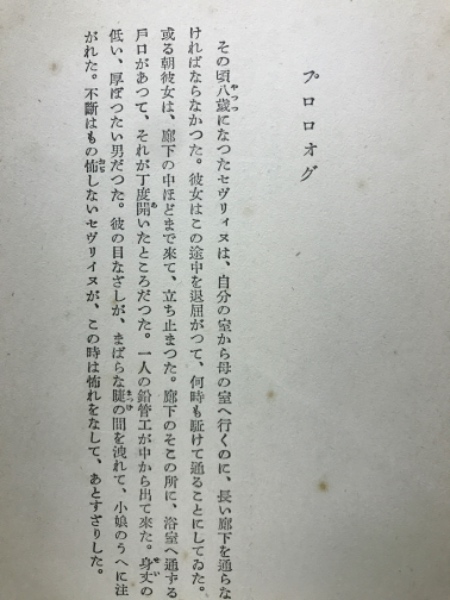 プロロオグ
その頃八歳になつたセヴリイヌは、自分の室から母の室へ行くのに、長い廊下を通らな
ければならなかつた。彼女はこの途中を退屈がつて、何時も駈けて通ることにしてゐた。
或る朝彼女は、廊下の中ほどまで来て、立ち止まつた。廊下のそこの所に、浴室へ通ずる
戸口があつて、それが丁度開いたところだつた。一人の鉛管工が中から出て来た。身丈の
低い、厚ぼつたい男だつた。彼の目なざしが、まばらな睫の間を洩れて、小娘のうへに注
がれた。不斷はもの怖しないセヴリイヌが、この時は怖れをなして、あとすざりした。